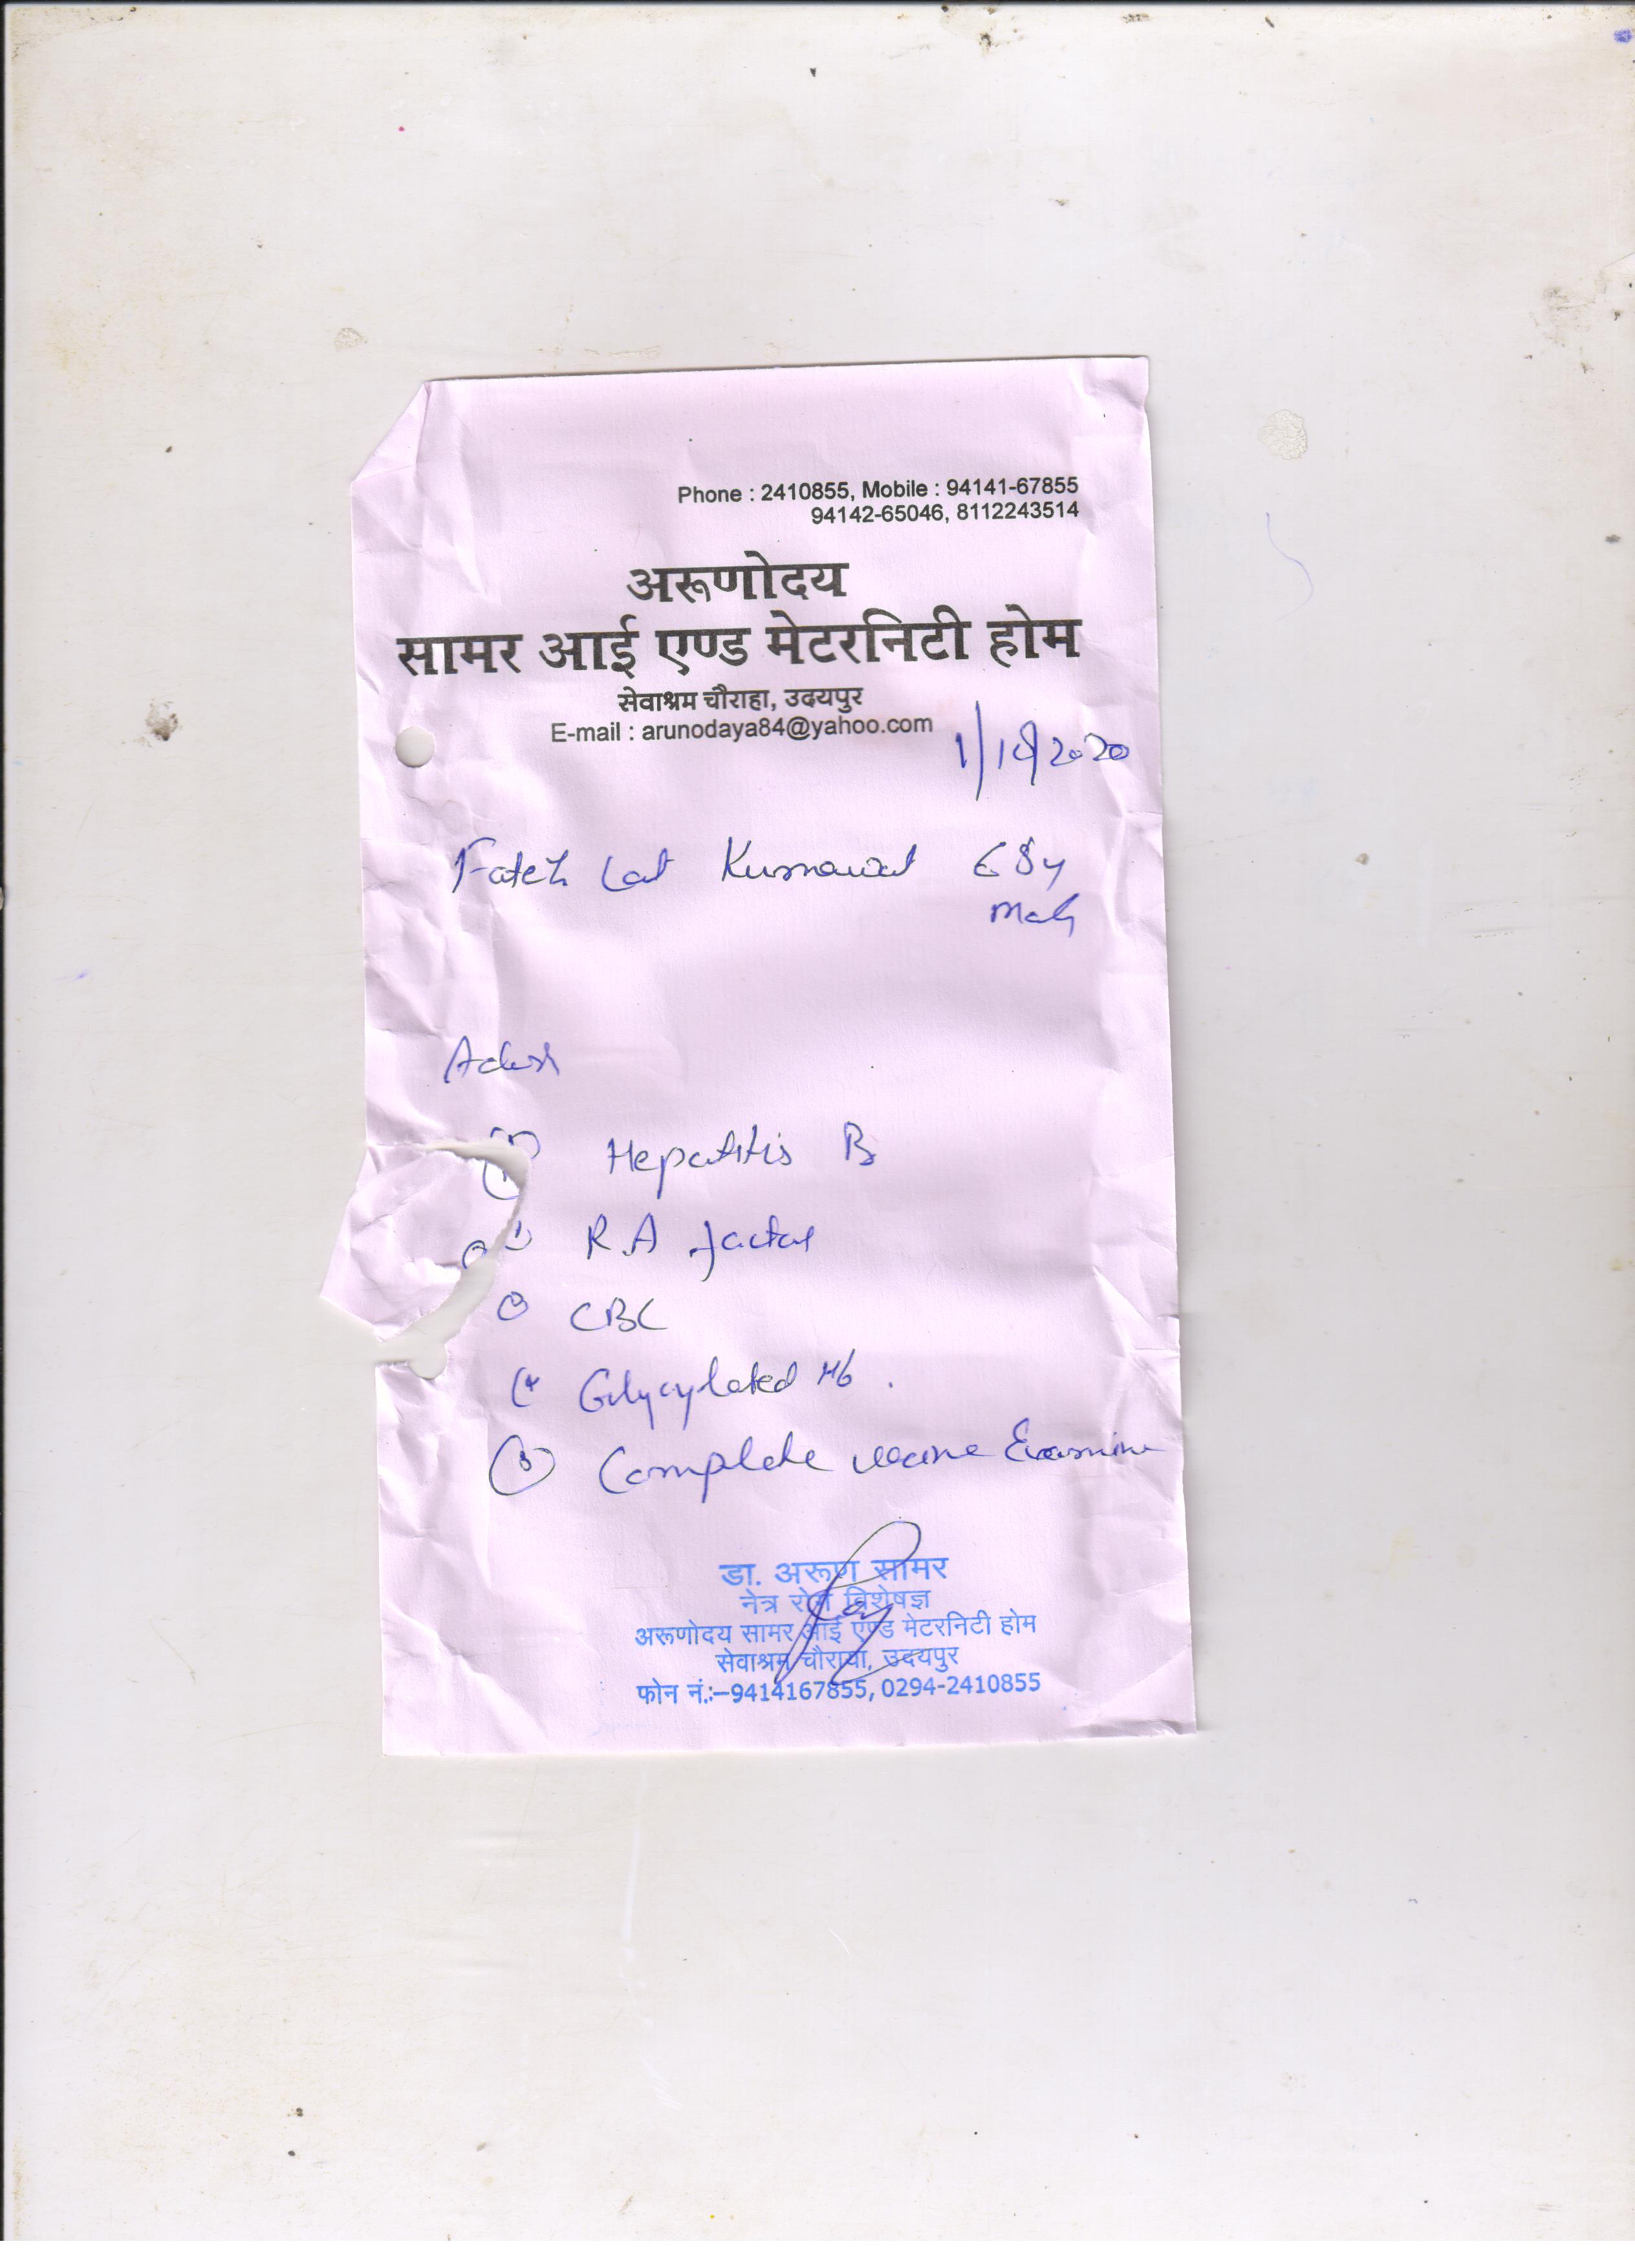 Phone : 2410855, Mobile : 94141-67855
94142-65046, 8112243514
अरूणोदय
सामर आई एण्ड मेटरनिटी होम
सेवाश्रम चौराहा, उदयपुर
E-mail : arunodaya84@yahoo.com
1/10/2020
Fateh Lal Kumawat 68y
Male
Advise
Hepatitis B
R.A factor
CBC
(4 Glycylated Hb.
(5) Complete urine Examine
डा. अरूण सामर
नेत्र रोग विशेषज्ञ
अरूणोदय सामर आई एण्ड मेटरनिटी होम
सेवाश्रम चौराया, उदयपुर
फोन नं.:–9414167855, 0294-2410855